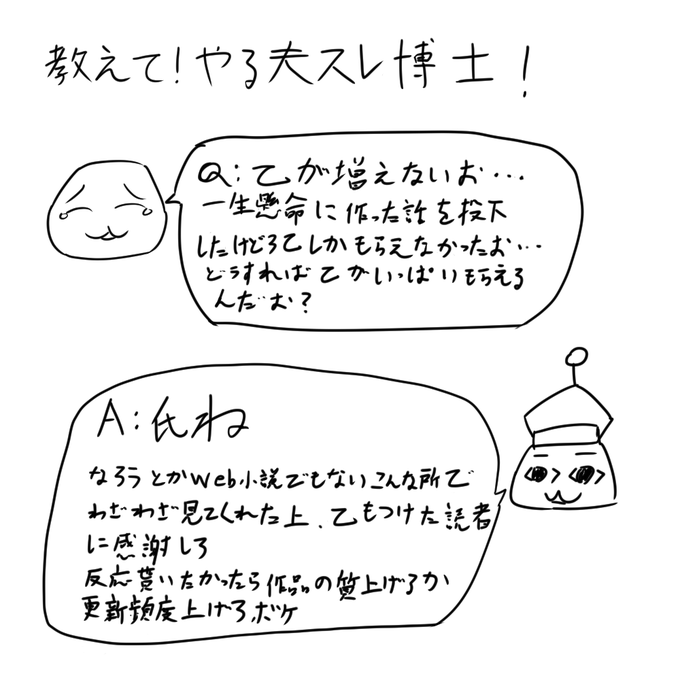 教えて！やる夫スレ博士！
Q:乙が増えないお…
一生懸命に作った話を投下
したけど3乙しかもらえなかったお…
どうすれば乙がいっぱいもらえる
んだお？
A:氏ね
なろうとかweb小説でもないこんな所で
わざわざ見てくれた上、乙もつけた読者
に感謝しろ
反応貰いたかったら作品の質上げるか
更新頻度上げろボケ